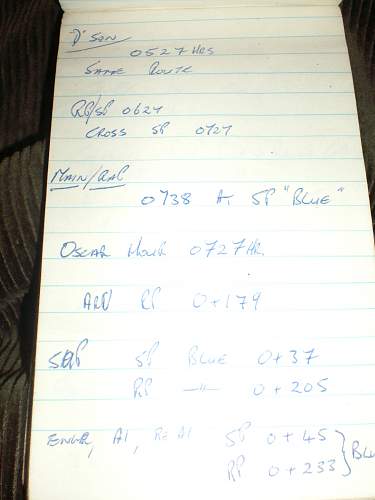 D'SON
0527 HRS
SAME ROUTE
RP/SP 0627
CROSS SP 0727
MAIN/
0738 AT SP "BLUE"
OSCAR HOUR 0727 HR.
ARR RP 0+179
SP BLUE 0+37
RP —"— 0+205
ENGR, A1, RE A1 SP 0+45
RP 0+233 } BLU